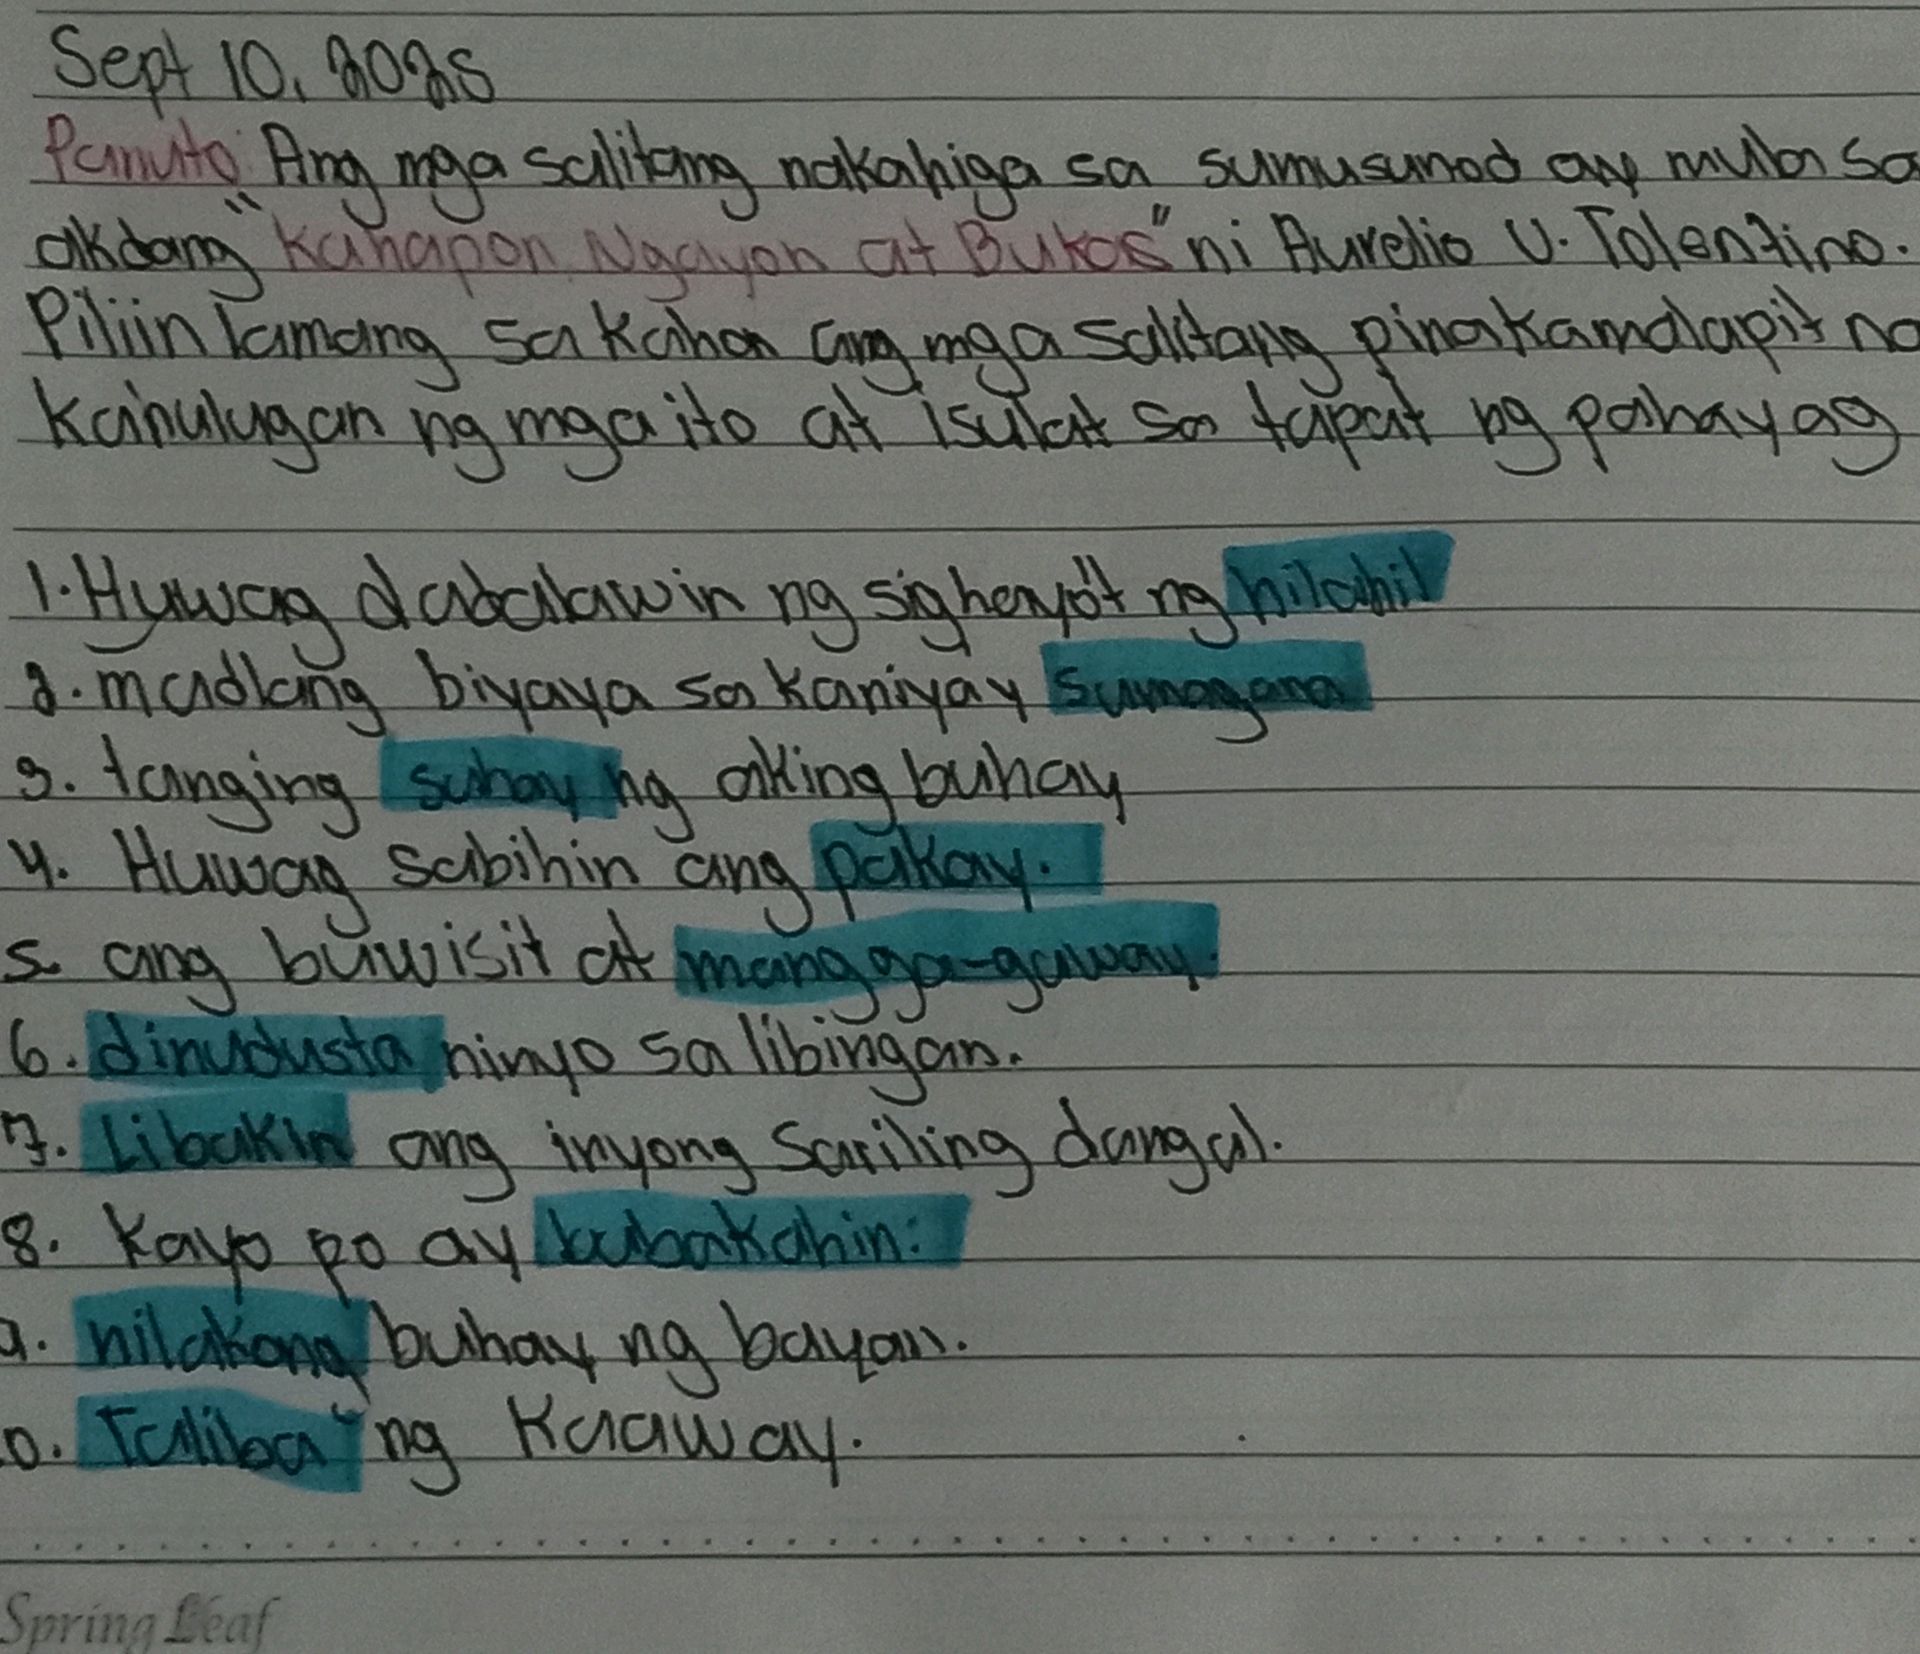 Sept 10, 2025
Panuto: Ang mga salitang nakahiga sa sumusunod ay mula sa
akdang "Kahapon, Ngayon at Bukas" ni Aurelio V. Tolentino.
Piliin lamang sa kahon ang mga salitang pinakamalapit na
kahulugan ng mga ito at isulat sa tapat ng pahayag
1. Huwag dabalawin ng sighenyo't ng hilahil
2. madlang biyaya sa kaniyay sumagana
3. tanging suhay ng aking buhay
4. Huwag sabihin ang pakay.
5. ang buwisit at mangga-gaway.
6. dinudusta ninyo sa libingan.
7. Libakin ang inyong Sariling dangal.
8. Kayo po ay kubakahin:
9. nilakong buhay ng bayan.
0. Taliba" ng Kaaway.
Spring Leaf